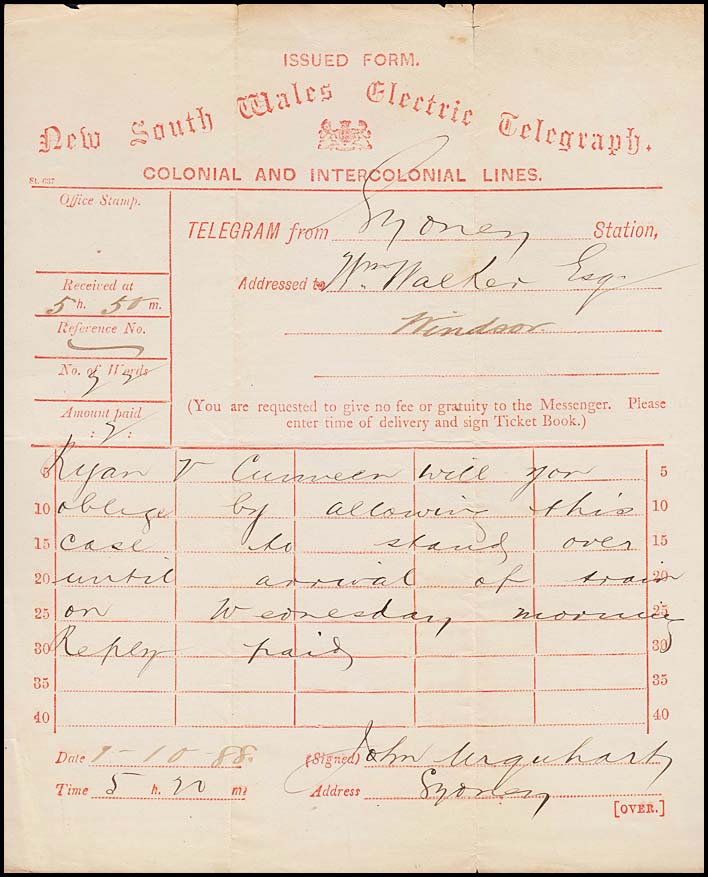 ISSUED FORM.
New South Wales Electric Telegraph.
COLONIAL AND INTERCOLONIAL LINES.
St. 637
Office Stamp.
Received at
5 h. 50 m.
Reference No.
No. of Words
Amount paid
: 2 :
TELEGRAM from Sydney Station,
Addressed to Wm. Walker Esq.
Windsor
(You are requested to give no fee or gratuity to the Messenger. Please
enter time of delivery and sign Ticket Book.)
5 Ryan v will you 5
10 oblige by allowing this 10
15 case to stand over 15
20 until arrival of train 20
25 on Wednesday morning 25
30 Reply paid 30
35 35
40 40
Date -10-88. (Signed) John Urquhart
Time 5 h. 20 m. Address Sydney
[OVER.]